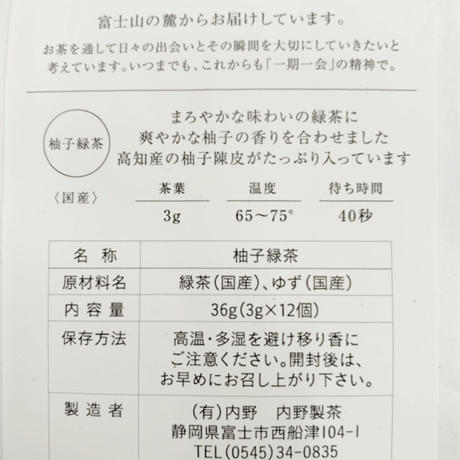 富士山の麓からお届けしています。
お茶を通して日々の出会いとその瞬間を大切にしていきたいと
考えています。いつまでも、これからも「一期一会」の精神で。
柚子緑茶
〈国産〉
まろやかな味わいの緑茶に
爽やかな柚子の香りを合わせました
高知産の柚子陳皮がたっぷり入っています
茶葉 温度 待ち時間
3g 65〜75° 40秒
名称 柚子緑茶
原材料名 緑茶(国産)、ゆず(国産)
内容量 36g(3g×12個)
保存方法 高温・多湿を避け移り香に
ご注意ください。開封後は、
お早めにお召し上がり下さい。
製造者 (有)内野 内野製茶
静岡県富士市西船津104-1
TEL(0545)34-0835